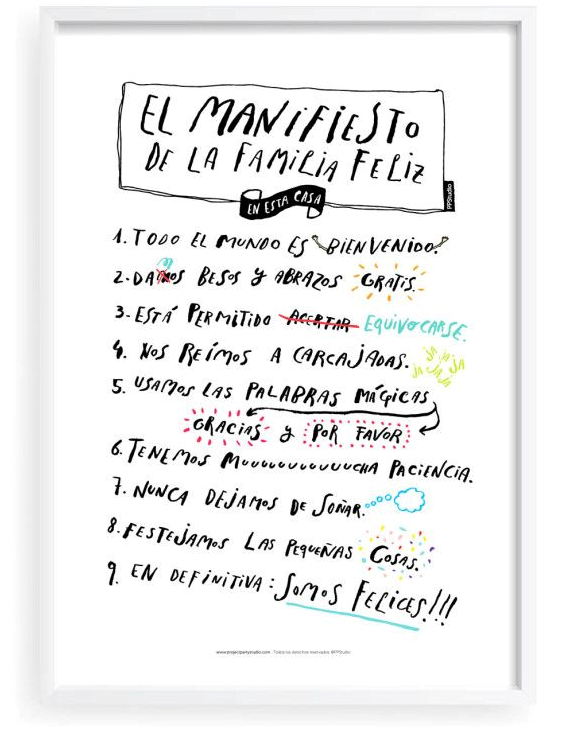 EL MANIFIESTO
DE LA FAMILIA FELIZ
PPStudio
EN ESTA CASA
1. TODO EL MUNDO ES BIENVENIDO.
2. DAMOS BESOS Y ABRAZOS GRATIS.
3. ESTÁ PERMITIDO ACERTAR EQUIVOCARSE.
4. NOS REÍMOS A CARCAJADAS. ja ja ja ja ja ja
5. USAMOS LAS PALABRAS MÁGICAS
GRACIAS Y POR FAVOR
6. TENEMOS Muuuuuuuuuuucha PACIENCIA.
7. NUNCA DEJAMOS DE SOÑAR.
8. FESTEJAMOS LAS PEQUEÑAS COSAS.
9. EN DEFINITIVA: SOMOS FELICES!!!
www.projectpartystudio.com . Todos los derechos reservados ©PPStudio